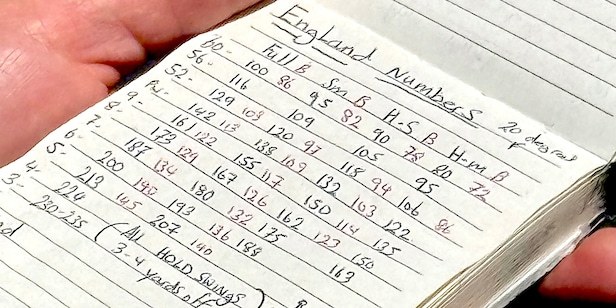 England Numbers 20 degrees
Full B Sm B H-S B H-m B
60- 100 86 95 82 90 78 80 72
56- 116 109 105 95
52- 129 108 120 97 118 94 106 86
PW- 142 113 138 109 132 103 122
9- 161 122 155 117 150 114 135
8- 173 129 167 126 162 123 150
7- 187 134 180 132 175 163
6- 200 140 193 136 188
5- 213 145 207 140
4- 224
3- 230-235
(All HOLD SWINGS
3-4 yards off)